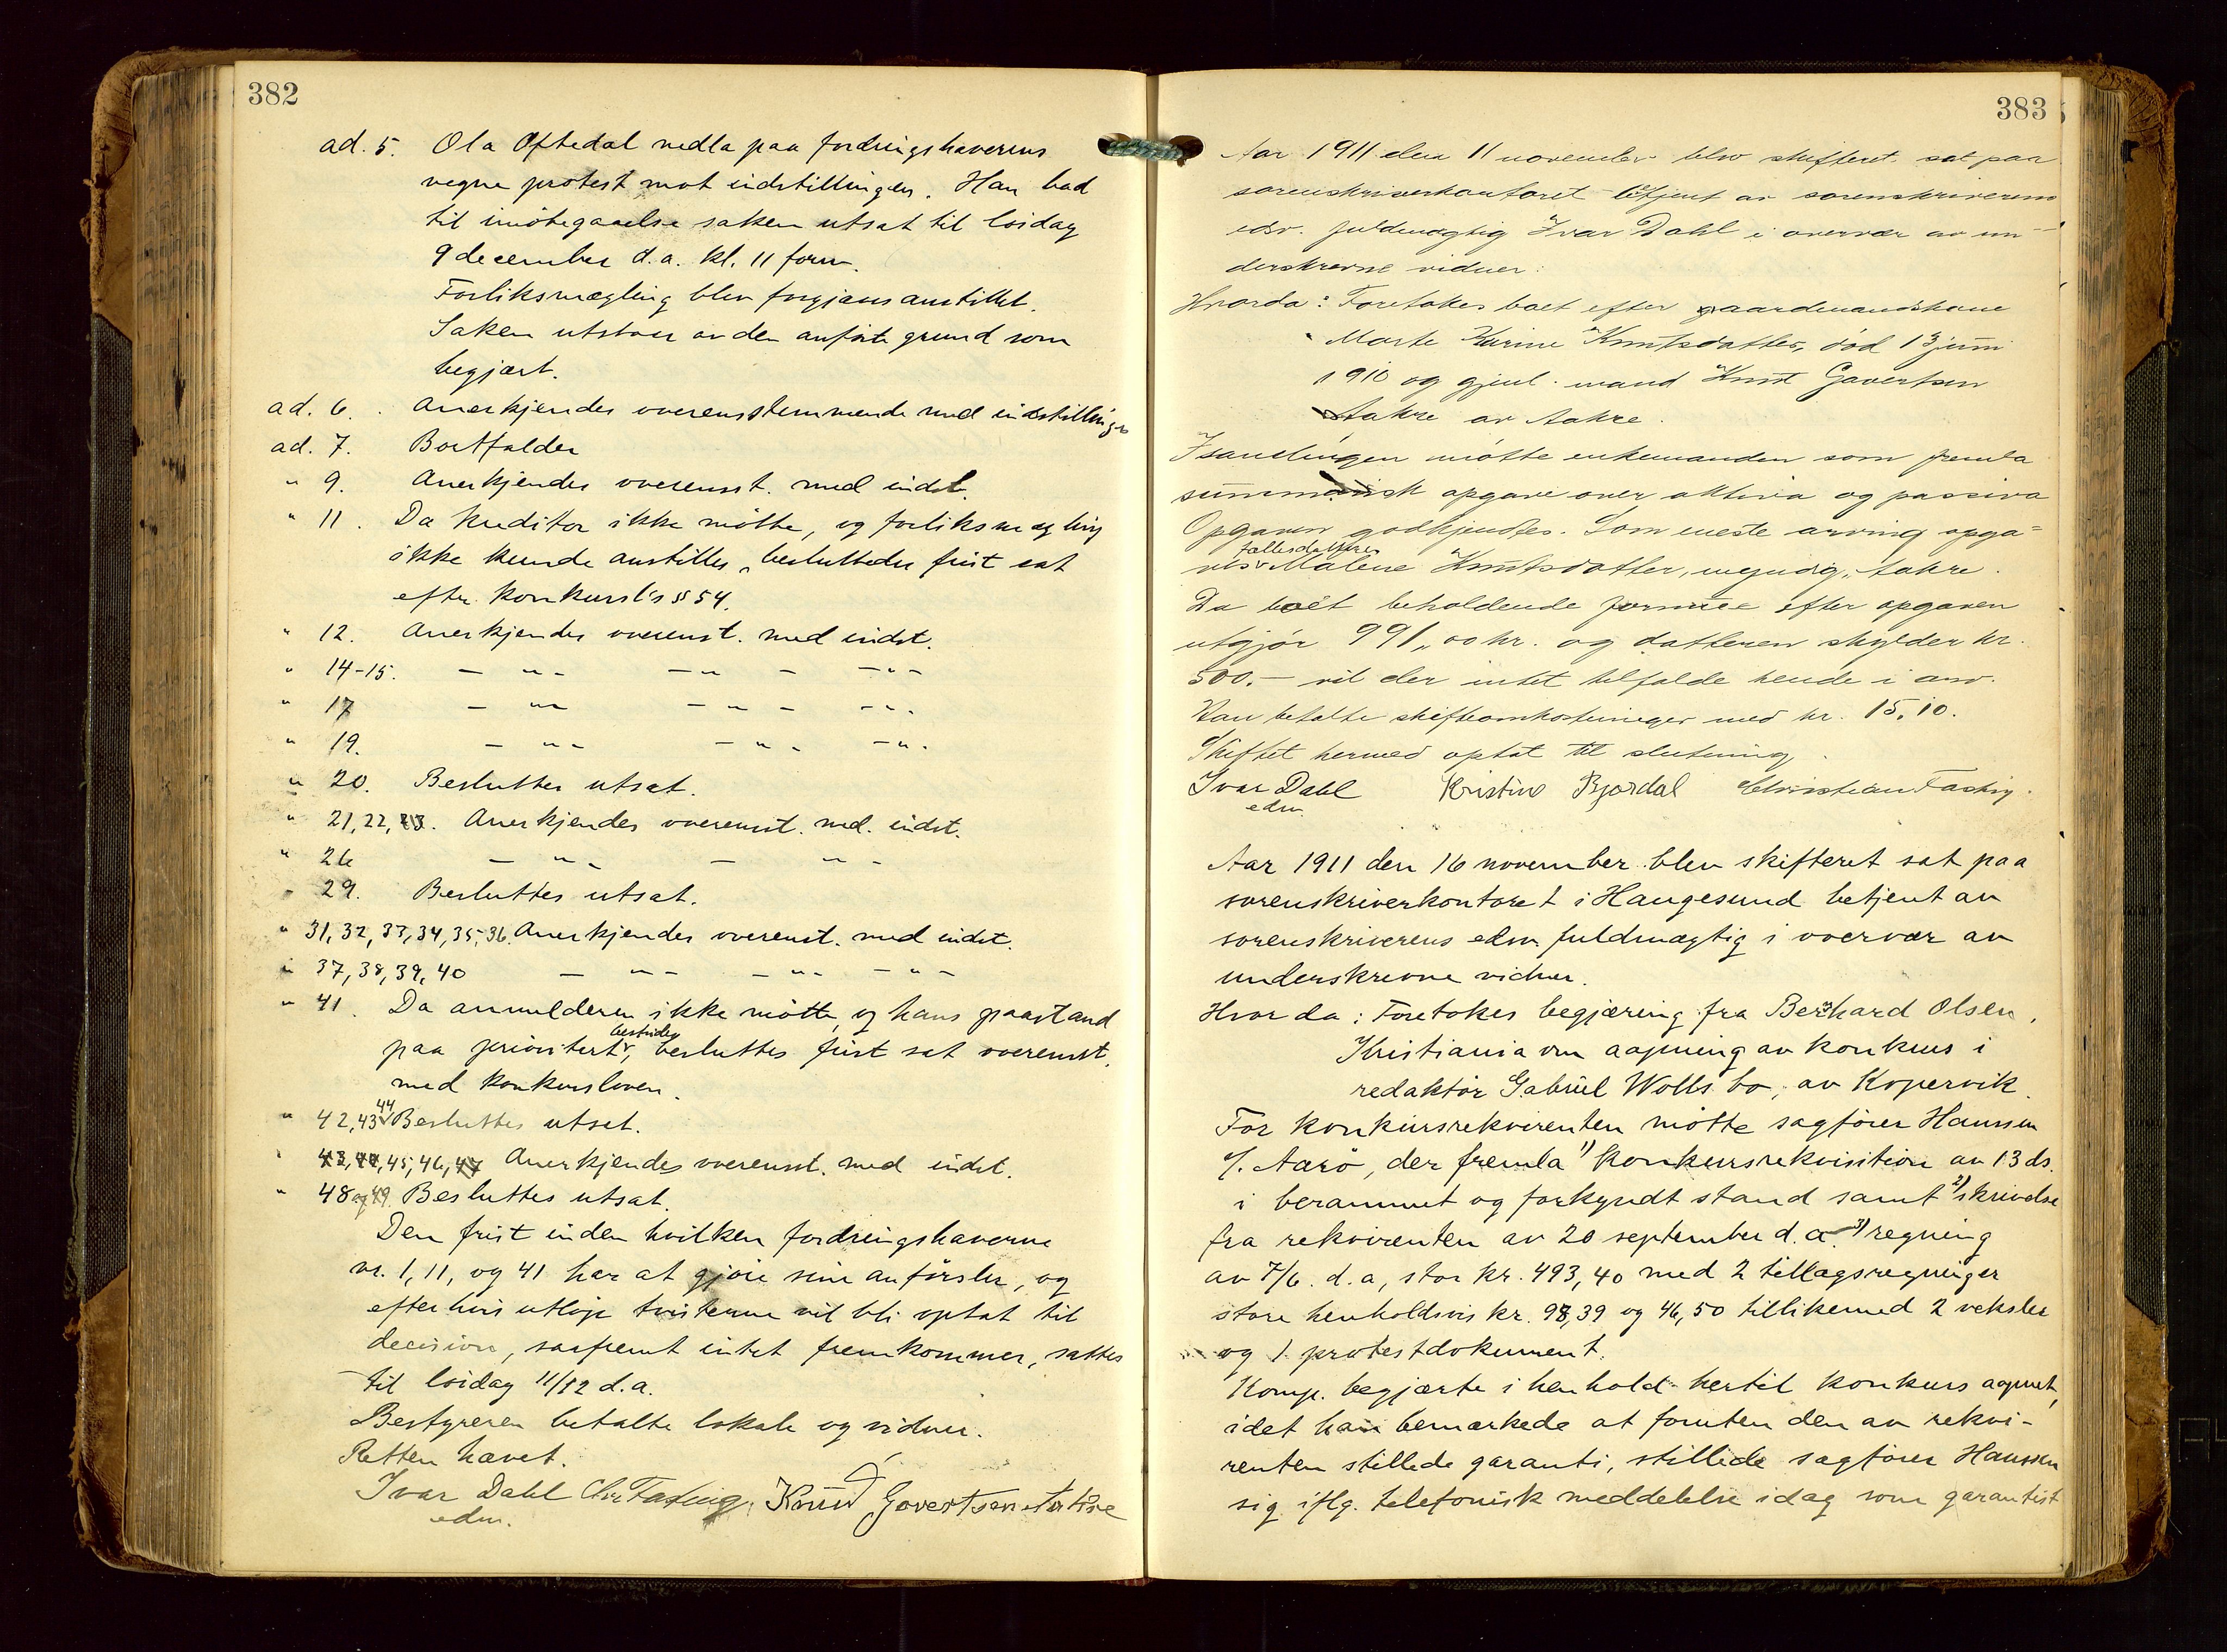 382
ad. 5. Ola Oftedal nedla paa fordringshaverens
vegne protest mot indstillingen. Han bad
til imötegaaelse saken utsat til lördag
9 december d.a. kl. 11 form.
Forliksmægling blev forgjæves anstillet.
Saken utstaar av den anförte grund som
begjært.
ad. 6. Anerkjendes overensstemmende med indstillingen
ad. 7. Bortfalder
" 9. Anerkjendes overensst. med indst.
" 11. Da kreditor ikke mötte, og forliksmægling
ikke kunde anstilles, besluttedes frist sat
efter konkursl's § 54.
" 12. Anerkjendes overenst. med indst.
" 14-15. — " - — " - — " -
" 17 — " - — " - — " -
" 19. — " - — " - — " -
" 20. Besluttes utsat.
" 21, 22, 23. Anerkjendes overensst. med. indst.
" 26 — " - — " -
" 29. Besluttes utsat.
" 31, 32, 33, 34, 35, 36. Anerkjendes overenst. med indst.
" 37, 38, 39, 40 — " - — " - — " -
" 41. Da anmelderen ikke mötte, og hans paastand
paa prioritet bestrides, besluttes frist sat overensst.
med konkursloven.
" 42, 43, 44 Besluttes utsat.
" 43, 44, 45, 46, 47 Anerkjendes overensst. med indst.
" 48 og 49. Besluttes utsat.
Den frist inden hvilken fordringshaverne
nr. 1, 11, og 41 har at gjöre sine anförsler, og
efter hvis utlöp tvisterne vil bli optat til
decision, saafremt intet fremkommer, sattes
til lördag 11/12 d.a.
Bestyreren betalte lokale og vidner.
Retten hævet.
Ivar Dahl Chr Fasting. Knud Govertsen Aakre
edsv.
383
Aar 1911 den 11 november blev skifteret sat paa
sorenskriverkontoret betjent av sorenskriverens
edsv. fuldmægtig Ivar Dahl i overvær av un-
derskrevne vidner:
Hvorda: Foretokes boet efter gaardmandskone
Marte Karine Knutsdatter, död 13 juni
1910 og gjenl. mand Knut Govertsen
Aakre av Aakre.
I samlingen mötte enkemanden som fremla
summarisk opgave over aktiva og passiva
Opgaven godkjendtes. Som eneste arving opga-
ves fællesdatteren Malene Knutsdatter, myndig, Aakre.
Da boet beholdende formue efter opgaven
utgjör 991,00 kr. og datteren skylder kr.
500.- vil der intet tilfalde hende i arv.
Han betalte skifteomkostninger med kr. 15.10.
Skiftet hermed optat til slutning.
Ivar Dahl Kristine Bjordal Christian Fasting.
edsv.
Aar 1911 den 16 november blev skifteret sat paa
sorenskriverkontoret i Haugesund betjent av
sorenskriverens edsv. fuldmægtig i overvær av
underskrevne vidner.
Hvor da: Foretokes begjæring fra Bernhard Olsen,
Kristiania om aapning av konkurs i
redaktör Gabriel Wolls bo, av Kopervik.
For konkursrekvirenten mötte sagförer Hanssen
f. Aarö, der fremla 1) konkursrekvisition av 13 ds.
i berammet og forkyndt stand samt 2) skrivelse
fra rekvirenten av 20 september d.a. 3) regning
av 7/6. d.a, stor kr. 493,40 med 2 tillægsregninger
store henholdsvis kr. 98,39 og 46,50 tillikemed 2 veksler
og 1 protestdokument.
Komp. begjærte i henhold hertil konkurs aapnet,
idet han bemærkede at foruten den av rekvi-
renten stillede garanti, stillede sagförer Hanssen
sig iflg. telefonisk meddelelse idag som garantist